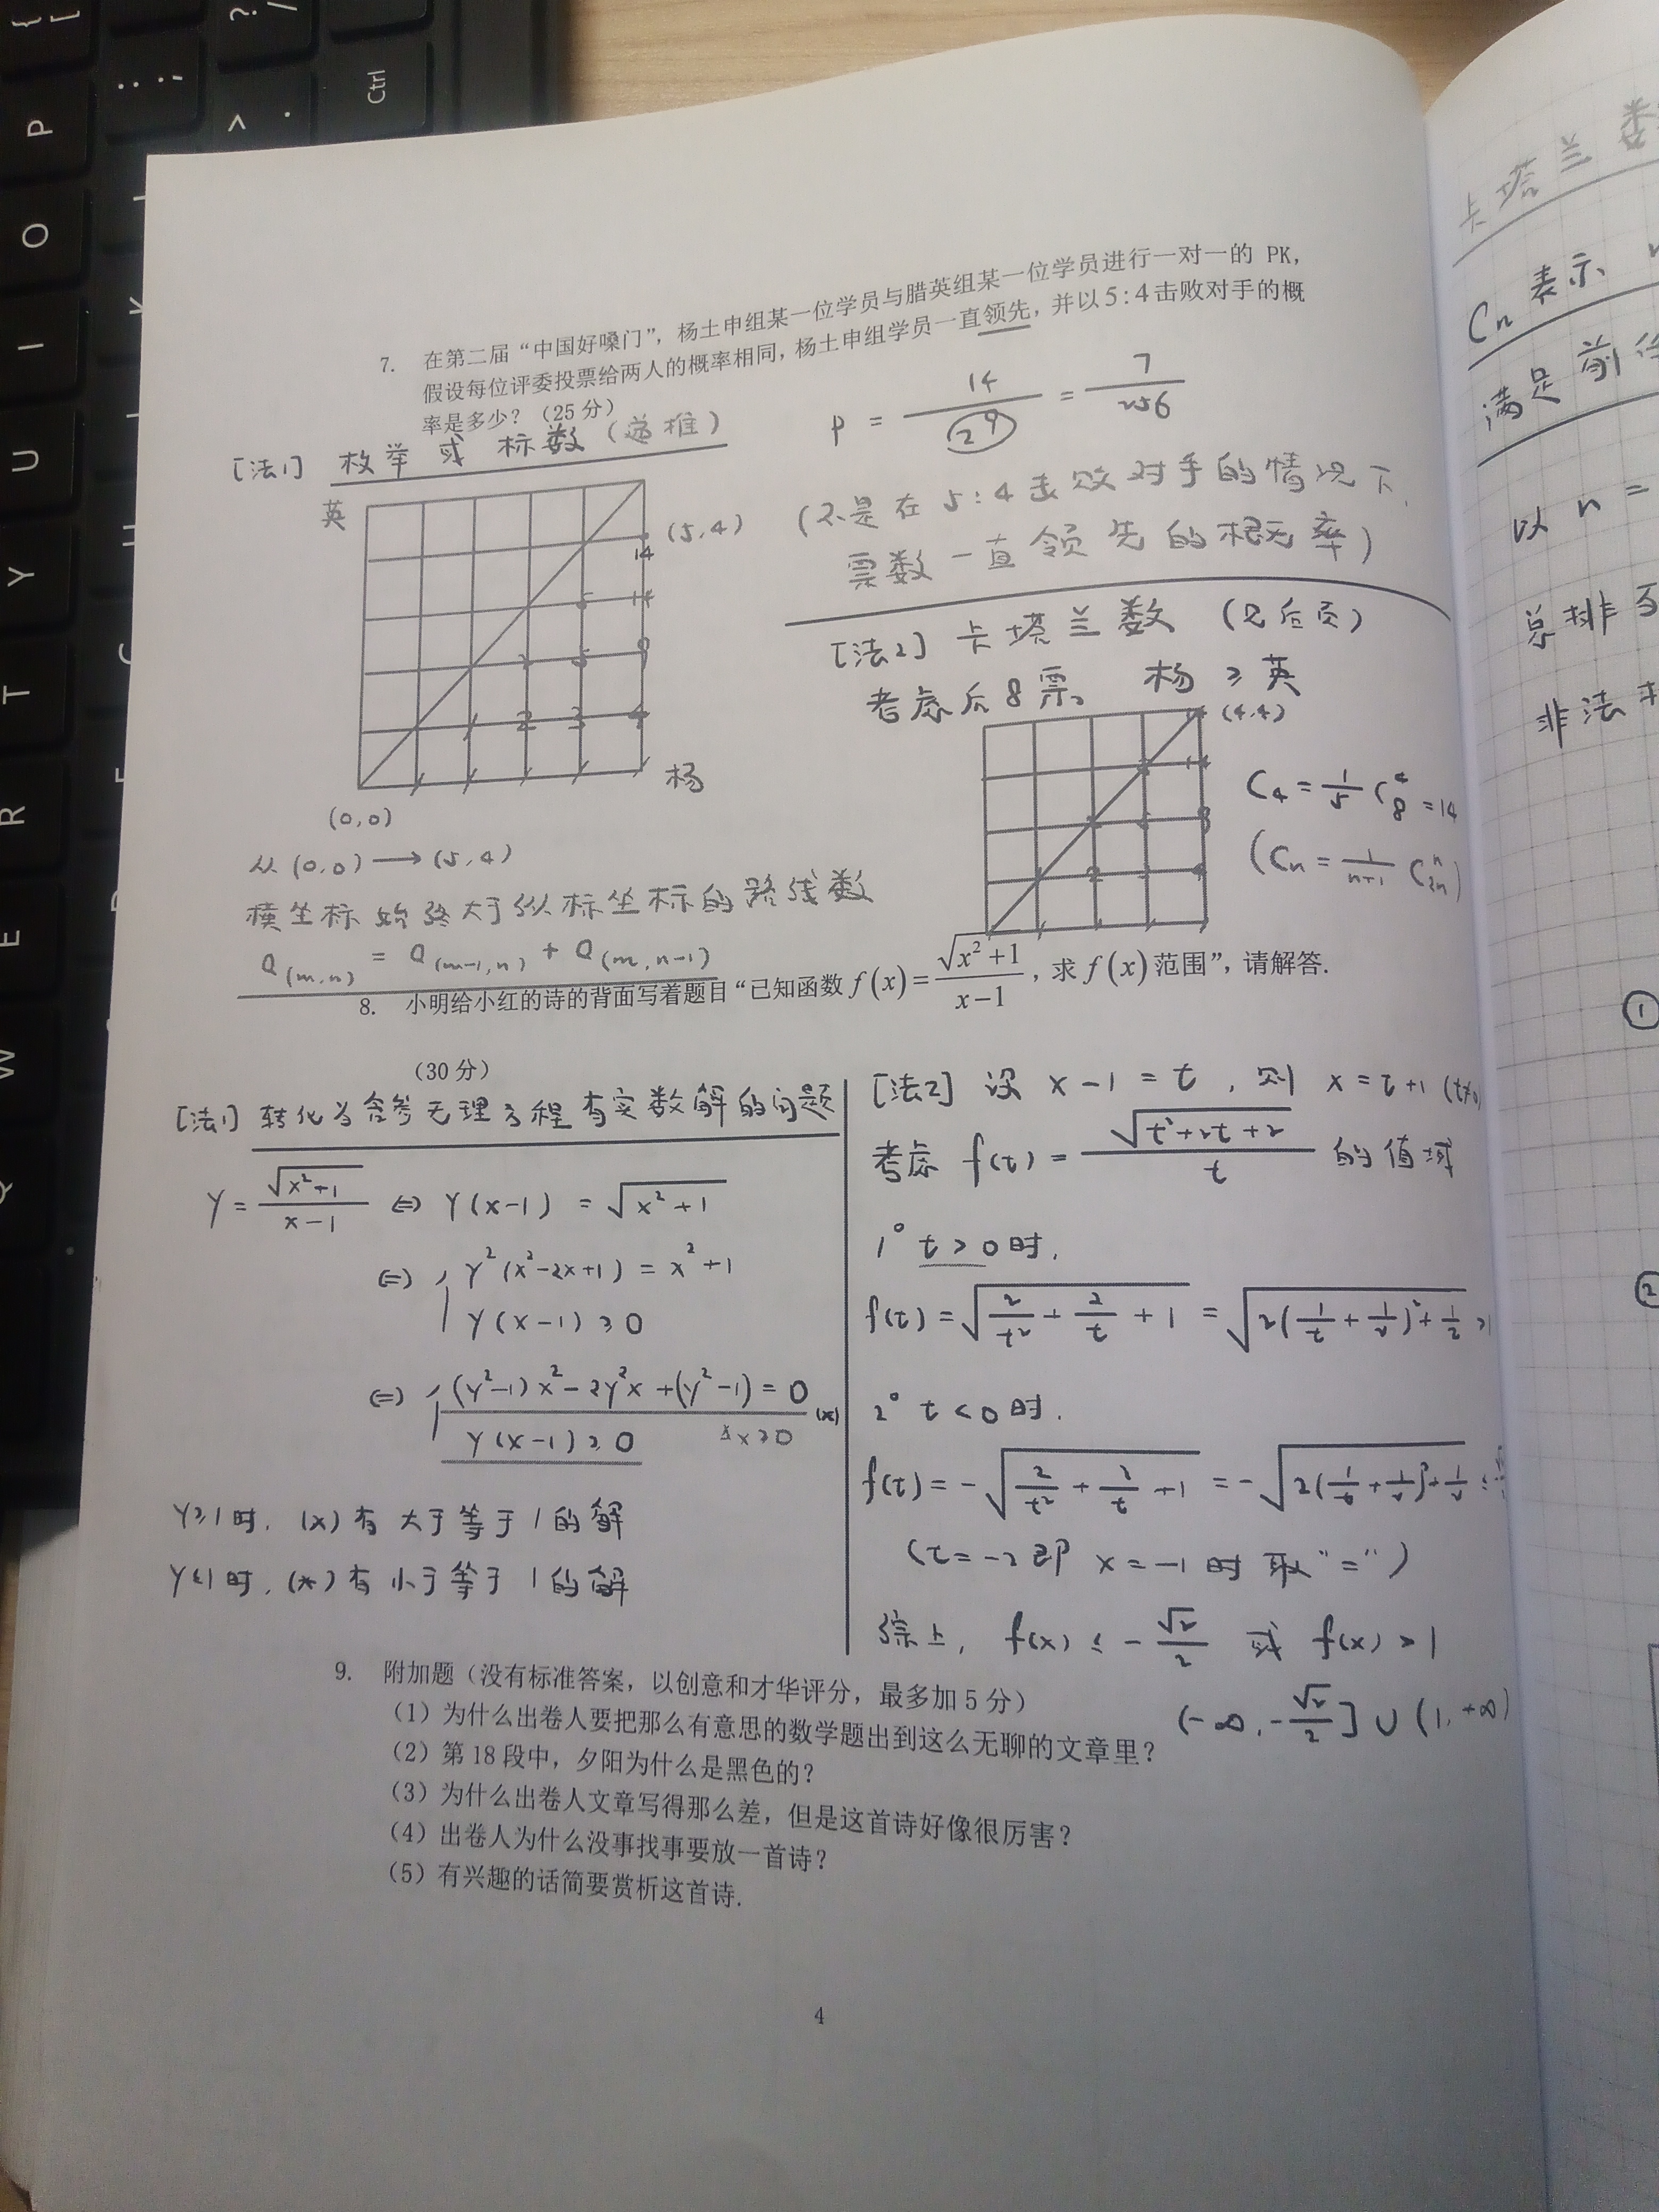 7. 在第二届“中国好嗓门”，杨土申组某一位学员与腊英组某一位学员进行一对一的 PK，
假设每位评委投票给两人的概率相同，杨土申组学员一直领先，并以5:4击败对手的概
率是多少？（25分）
[法1] 枚举或标数（递推）
p = 14/2^9 = 7/256
（不是在5:4击败对手的情况下，
票数一直领先的概率）
英
(5,4)
14
5 14
2 5 9
1 2 3 4
杨
(0,0)
从(0,0)→(5,4)
横坐标始终大于纵标坐标的路线数
Q(m,n) = Q(m-1,n) + Q(m,n-1)
[法2] 卡塔兰数（见后页）
考虑后8票。 杨≥英
(4,4)
C₄ = 1/5 C₈⁴ = 14
(Cₙ = 1/(n+1) C₂ₙⁿ)
8. 小明给小红的诗的背面写着题目“已知函数 f(x)=√(x²+1)/(x−1)，求 f(x)范围”，请解答.
（30分）
[法1] 转化为含参无理方程有实数解的问题
Y = √(x²+1)/(x-1) ⇔ Y(x-1) = √(x²+1)
⇔ { Y²(x²-2x+1) = x²+1
Y(x-1) ≥ 0
⇔ { (Y²-1)x² - 2Y²x + (Y²-1) = 0 (*)
Y(x-1) ≥ 0
Y≥1时，(*)有大于等于1的解
Y≤1时，(*)有小于等于1的解
[法2] 设 x-1 = t，则 x = t+1
考虑 f(t) = √(t²+2t+2)/t 的值域
1° t>0时，
f(t) = √(2/t² + 2/t + 1) = √(2(1/t + 1/2)² + 1/2) >
2° t<0时，
f(t) = -√(2/t² + 2/t + 1) = -√(2(1/t + 1/2)² + 1/2) ≤
（t=-2即 x=-1时取“=”）
综上，f(x) ≤ -√2/2 或 f(x) > 1
(-∞, -√2/2] ∪ (1, +∞)
9. 附加题（没有标准答案，以创意和才华评分，最多加5分）
（1）为什么出卷人要把那么有意思的数学题出到这么无聊的文章里？
（2）第18段中，夕阳为什么是黑色的？
（3）为什么出卷人文章写得那么差，但是这首诗好像很厉害？
（4）出卷人为什么没事找事要放一首诗？
（5）有兴趣的话简要赏析这首诗.
4
卡塔兰
Cn 表示
满足前
以 n =
总排
非法
①
②
{ [
P
O
I
U
Y
T
R
E
W
Q
: ;
> .
? /
Ctrl